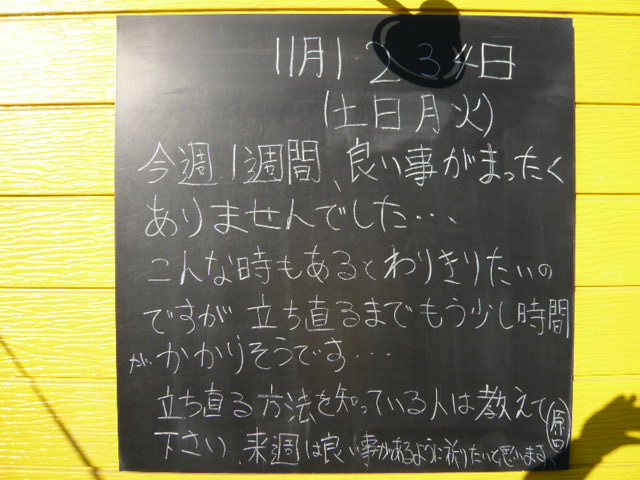 11月1・2 3 4日
(土日月火)
今週1週間、良い事がまったく
ありませんでした・・・、
こんな時もあるとわりきりたいの
ですが立ち直るまでもう少し時間
がかかりそうです・・・
立ち直る方法を知っている人は教えて
下さい、来週は良い事があるように祈りたいと思います。
原口